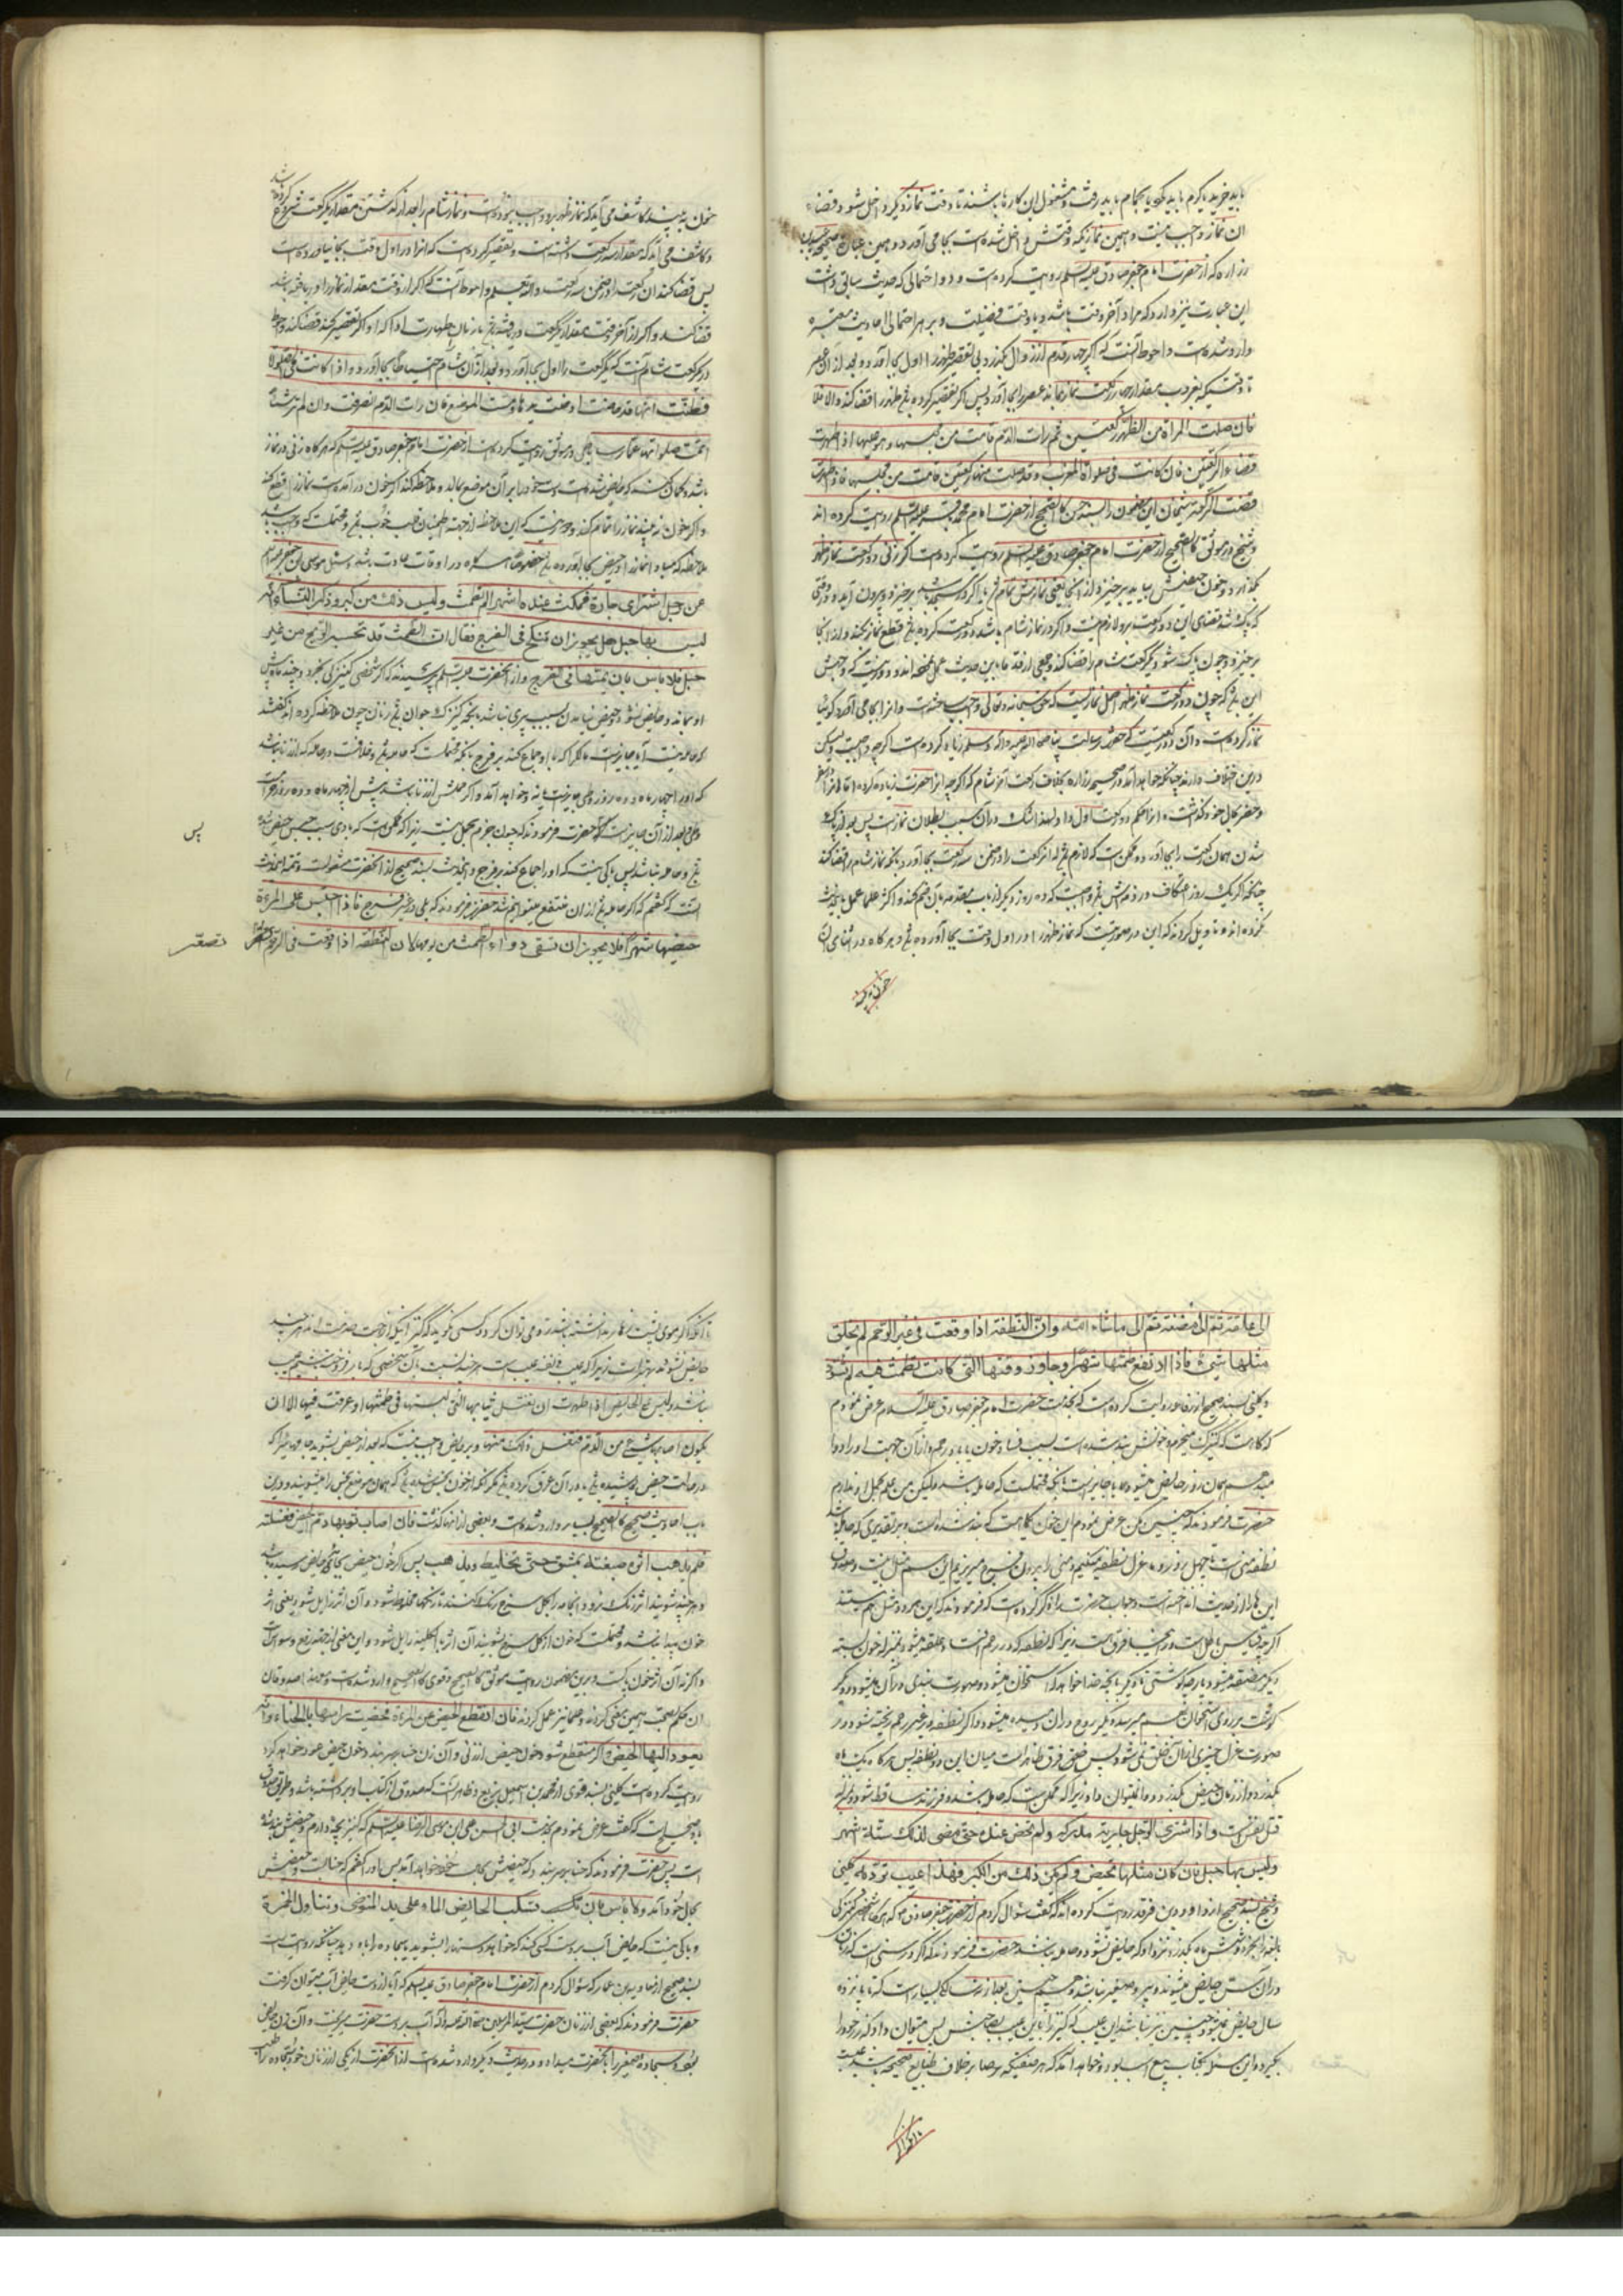 باید خرید یا کرم باید کرد یا بحمام باید رفت و مشغول این کارها باشند تا وقت نماز دیگر داخل شود قضاء
آن نماز واجب نیست و همین نمازیکه وقتش داخل شده است بجا می آورد و همین عبارت صحیحه
زراره که از حضرت امام جعفر صادق علیه السلم روایت کرده است و دو احتمالی که حدیث سابق داشت
این عبارت نیز دارد که مراد آخر وقت باشد و یا وقت فضیلت و بر هر احتمالی احادیث معتبره
وارد شده است و احوط آنست که اگر چهار قدم از زوال بگذرد بی تقصیر ظهر را اول بجا آورد و بعد از آن عصر
تا وقتیکه بغروب بمقدار چهار رکعت نماز بماند عصر را بجا آورد پس اگر تقصیر کرده باشد ظهر را قضا کند و الا فلا
فان صلت المراة من الظهر رکعتین ثم رات الدم قامت من مجلسها ولیس علیها اذا طهرت
قضاء الرکعتین فان کانت فی صلوة المغرب وقد صلت منها رکعتین قامت من مجلسها فاذا طهرت
قضت الرکعة شیخان این مضمون را بسند حسن کالصحیح از حضرت امام محمد باقر علیه السلم روایت کرده اند
و شیخ در موثق کالصحیح از حضرت امام جعفر صادق علیه السلم روایت کرده است که اگر زنی دو رکعت نماز ظهر
بگذارد و خون حیضش بیاید برخیزد از آنجا یعنی نمازش تمام
که پاک شد قضای این دو رکعت برو لازم نیست و اگر در نماز شام باشد و دو رکعت کرده باشد قطع نماز بکند و از آنجا
برخیزد و چون پاک شود یک رکعت شام را قضا کند و جمعی از قدما باین حدیث عمل نموده اند و دور نیست که وجهش
این باشد که چون دو رکعت نماز ظهر اصل نماز است که حق سبحانه و تعالی واجب ساخته است و آنرا بجا می آورد گوئیا
نماز کرده است و آن دو رکعتیست که حضرت رسالت پناه صلی الله علیه واله وسلم زیاد کرده است اگرچه واجبست و لیکن
درین تخفیف دارند چنانکه خواهد آمد در صحیحه زراره بخلاف رکعت آخر شام که اگرچه آنرا حضرت زیاده کرده اما
و حضر بحال خود گذاشته اند آنرا حکم دو رکعت اول داد و لهذا شک در آن سبب بطلان نماز است پس بعد از پاک
شدن همان رکعت را بجا آورد و ممکن است که لازم باشد که آن رکعت را در ضمن سه رکعت بجا آورد بآنکه نماز شام را قضا کند
چنانکه اگر یک روز اعتکاف در ذمتش باشد واجبست که دو روز دیگر از باب مقدمه بآن ضم کند و اکثر علما عمل باین حدیث
نکرده اند و تاویل کرده اند که این در صورتیست که نماز ظهر را در اول وقت بجا آورده باشد و هر گاه در اثنای آن
خون به بیند
خون به بیند کاشف می آید که نماز ظهر برو واجب نبوده است و نماز شام را بعد از گذشتن مقدار یک رکعت شروع کرده باشد
و کاشف می آید که مقدار سه رکعت داشته است و تقصیر کرده است که آنرا در اول وقت بجا نیاورده است
پس قضا کند آن رکعت را در ضمن سه رکعت والله تعالی یعلم و احوط آنست که اگر از وقت مقدار نماز را دریافته باشد
قضا کند و اگر از آخر وقت مقدار یک رکعت دریافته باشد با زمان طهارت ادا کند و اگر تقصیر کند قضا کند و احوط
در رکعت شام آنست که یک رکعت را اول بجا آورد و بعد از آن شام تمام احتیاطا بجا آورد و اذا کانت فی الصلوة
فظنت انها قد حاضت ادخلت یدها ومست الموضع فان رات الدم انصرفت وان لم تر شیئا
اتمت صلوتها عمار ساباطی در موثق روایت کرده است از حضرت امام جعفر صادق علیه السلم که هر گاه زنی در نماز
باشد و گمان کند که حایض شده است دست خود را بر آن موضع بمالد و ملاحظه کند اگر خون در آمده است نماز را قطع کند
و اگر خون نه بیند نماز را تمام کند و دور نیست که این ملاحظه از جهت اطمینان قلب خوب باشد و محتملست که واجب باشد
ملاحظه که مبادا نماز را در حیض بجا آورده باشد خصوصا هرگاه در اوقات عادت باشد و سئل موسی بن جعفر علیهما السلم
عن رجل اشتری جاریة فمکثت عنده اشهرا لم تطمث ولیس ذلک من کبر وذکر النساء انه
لیس بها حبل هل یجوز ان تنکح فی الفرج فقال ان الطمث قد تحبسه الریح من غیر
حبل فلا باس بان یمسها فی الفرج و از آنحضرت علیه السلم پرسیدند که اگر شخصی کنیزکی بخرد و چند ماه پیش
او بماند و حایض نشود و حیض نیامدن بسبب پیری نباشد بلکه کنیزک جوان باشد و زنان چون ملاحظه کرده اند گفتند
که حامله نیست آیا جایز است مالک را که با او جماع کند بر فرج بآنکه محتملست که حامله باشد و خلافست در حامله که از زنا باشد
که او را چهار ماه و ده روز وطی جایز است یا نه و خواهد آمد و اگر حملش از زنا باشد پیش از چهار ماه و ده روز حرامست
وطی و بعد از آن جایز است حضرت فرمودند که چون جزم بحمل نیست زیرا که ممکن است که بادی سبب حبس حیض شده
باشد و حامله نباشد پس باکی نیست که او را جماع کند بر فرج و این حدیث بسند صحیح از آنحضرت منقولست و تتمه این حدیث
آنست که گفتم که اگر حامله باشد از آن منتفع میتوانم شد حضرت فرمودند که بلی در غیر فرج فاذا احتبس علی المرءة
حیضها شهرا فلا یجوز ان تسقی دواء الطمث من یومها لان النطفة اذا وقعت فی الرحم تصیر
پس
تصیر
الی علقة ثم الی مضغة ثم الی ما شاء الله وان النطفة اذا وقعت فی غیر الرحم لم یخلق
منها شیئ فاذا ارتفع طمثها شهرا وجاوز وقتها التی کانت تطمث فیه لم تسق دواء
و کلینی بسند صحیح از رفاعه روایت کرده است که بخدمت حضرت امام جعفر صادق علیه السلام عرض نمودم
که گاه هست که کنیزک میخرم و خونش بند شده است بسبب فساد خون یا باد در رحم و از آن جهت او را دوا
میدهم همان روز حایض میشود آیا جایز است بآنکه محتملست که حامله باشد و لیکن من علم بحمل او ندارم
حضرت فرمودند که چنین مکن عرض نمودم این خون یکماهست که بند شده است و بر تقدیری که حامله باشد
نطفه منی است تا چهل روز و ما عزل نطفه میکنیم و منی را بیرون فرج میریزیم این هم مثل آنست و
این قیاس فاسد است جواب حضرت فرمودند که این هر دو مثل هم نیستند
اگرچه قیاس باطل است و در اینجا فرق هست زیرا که نطفه که در رحم افتاد علقه میشود یعنی خون بسته
دیگر مضغه میشود یا پارچه گوشتی تا دیگر بآنچه خدا خواهد که استخوان میشود و صورت بندی در آن میشود و دیگر
گوشت بر روی استخوان بهم میرسد و دیگر روح در آن دمیده میشود و اگر نطفه در غیر رحم ریخته شود در
صورت عزل چیزی از آن خلق نمی شود پس فرق ظاهر است میان این دو نطفه پس هر گاه یک ماه
بگذرد و از زمان حیض بگذرد دوا نمیتوان داد زیرا که ممکن است که حامله باشد و فرزند ساقط شود و بمنزله
قتل نفس است و اذا اشتری الرجل جاریة مدرکة ولم تحض عنده حتی مضی لذلک ستة اشهر
ولیس بها حبل فان کان مثلها تحیض ولم یکن ذلک من الکبر فهذا عیب ترد به کلینی
و شیخ بسند صحیح از داود بن فرقد روایت کرده اند که گفت سؤال کردم از حضرت جعفر صادق که هرگاه شخصی کنیزکی
بالغه بخرد و شش ماه بگذرد نزد او که حایض نشود و حامله نباشد حضرت فرمودند که اگر در سنی است که زنان
در آن سن حایض میشوند و پیر و صغیر نباشد
سال حایض نمیشود و چنین نیز نباشد این عیب است که کنیز را باین عیب بصاحبش پس میتوان داد که زر خود را
بگیرد و این مسئله در کتاب بیع بسیار بود و خواهد آمد که هر صفتیکه بر خلاف طبایع صحیحه باشد عیبست
تا آنکه اگر
تا آنکه اگر موی پشت زهار نداشته باشد رد می توان کرد و کسی نگوید که کنیز
حایض نشود بهتر است زیرا که عیب
نباشد و لیس علی الحائض اذا طهرت ان تغسل ثیابها التی لبستها فی طمثها او عرقت فیها الا ان
یکون اصابها شیئ من الدم فتغسل ذلک منها و بر حایض واجب نیست که بعد از حیض بشوید جامهائیرا که
در حالت حیض پوشیده باشد یا در آن عرق کرده باشد مگر آنکه از خون نجس شده باشد که همان موضع نجس را میشویند و درین
باب احادیث صحیح کالصحیح بسیار وارد شده است و بعضی از آنها گذشت فان اصاب ثوبها دم الحیض فغسلته
فلم یذهب اثره صبغته بمشق حتی یختلط ویذهب پس اگر خون حیض بجامه حایض رسیده باشد
و هر چند بشویند اثر رنگ نرود آنجامه را بگل سرخ رنگ کنند تا رنگها مخلوط شود و آن اثر زایل شود یعنی اثر
خون پیدا نباشد و محتملست که چون از گل سرخ بشویند آن اثر بالکلیة زایل شود و این معنی از جهة رفع وسواس
و اگر نه آن اثر خون پاکست و برین مضمون روایت موثق کالصحیح و قوی کالصحیح وارد شده است و
آن حکم مستحب است همین معنی کرده اند و علما نیز عمل کرده اند فان انقطع الحیض عن المراءة فخضبت راسها بالحناء فانه
یعود الیها الحیض و اگر منقطع شود خون حیض از زنی و آن زن حنا بر سر بندد خون حیض عود خواهد کرد
روایت کرده است کلینی بسند قوی از محمد بن اسمعیل بن بزیع و ظاهر آنست که صدوق از کتاب او برداشته باشد و طریق صدوق
باو صحیح است که گفت عرض نمودم بخدمت ابی الحسن علی بن موسی الرضا علیه السلم که کنیز بچه دارم و حیضش بند شده
است پس حضرت فرمودند که حنا بر سر بندد که حیضش بحال خود خواهد آمد پس باو گفتم که حنا بست و حیضش
بحال خود آمد و لا باس بان تسکب الحائض الماء علی ید المتوضئ وتناوله الخمرة
و باکی نیست که حایض آب بر دست کسی کند که خواهد دستها را بشوید یا سجاده را باو دهد چنانکه روایتست
بسند صحیح از معاویه بن عمار که سؤال کردم از حضرت امام جعفر صادق علیه السلم که آیا از دست حایض آب میتوان گرفت
حضرت فرمودند که بعضی از زنان حضرت سید المرسلین صلی الله علیه وآله آب بر دست حضرت میریخت و آن زن حایض
بود و سجاده صغیر را بآنحضرت میداد و در حدیث دیگر وارد شده است که آنحضرت از یکی از زنان خود سجاده را طلب